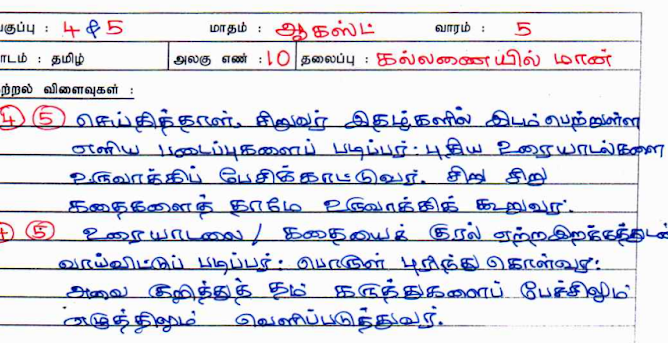 குப்பு : 4 & 5 மாதம் : ஆகஸ்ட் வாரம் : 5
ாடம் : தமிழ் அலகு எண் : 10 தலைப்பு : கல்லணையில் மான்
ற்றல் விளைவுகள் :
4 5 செய்தித்தாள், சிறுவர் இதழ்களில் இடம்பெற்றுள்ள
எளிய படைப்புகளைப் படிப்பர் : புதிய உரையாடல்களை
உருவாக்கிப் பேசிக்காட்டுவர். சிறு சிறு
கதைகளைத் தாமே உருவாக்கிக் கூறுவர்.
4 5 உரையாடலை / கதையைக் குரல் ஏற்றஇறக்கத்துடன்
வாய்விட்டுப் படிப்பர் : பொருள் புரிந்து கொள்வர் :
அவை குறித்துத் தம் கருத்துகளைப் பேச்சிலும்
எழுத்திலும் வெளிப்படுத்துவர்.